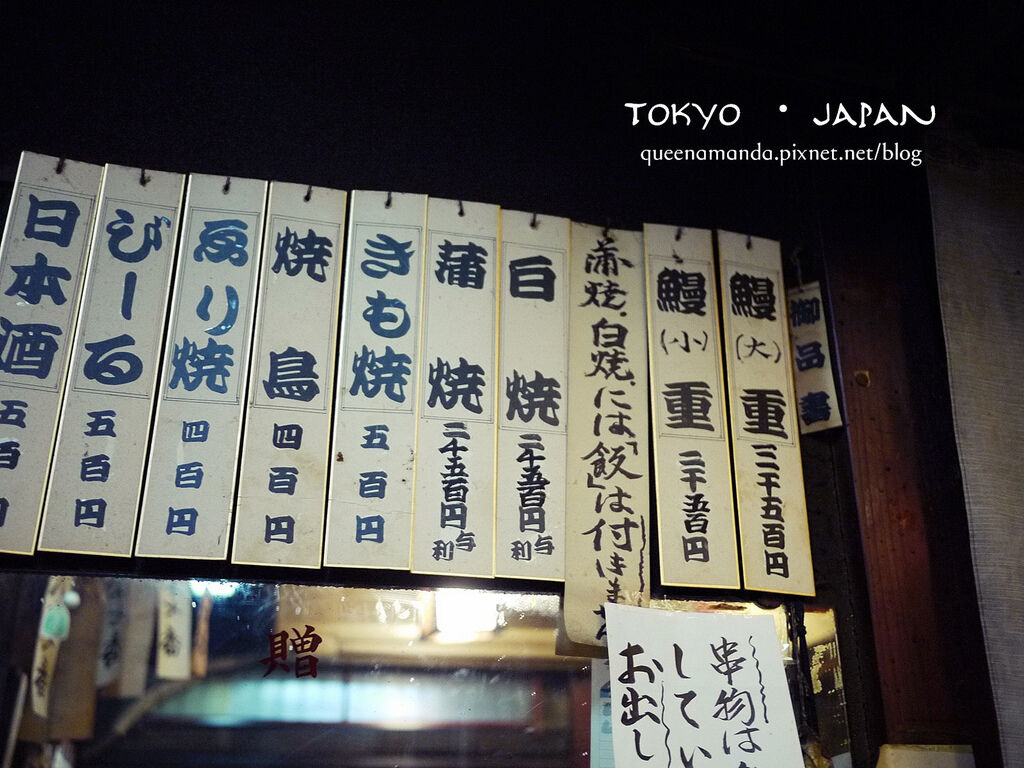 TOKYO ・ JAPAN
queenamanda.pixnet.net/blog
御品書
鰻(大)重 三千五百円
鰻(小)重 二千五百円
蒲焼、白焼、には「飯」は付きませ
白焼 二千五百円与利
蒲焼 二千五百円与利
きも焼 五百円
焼鳥 四百円
ゑり焼 四百円
びーる 五百円
日本酒 五百
串物は
してい
お出し
贈